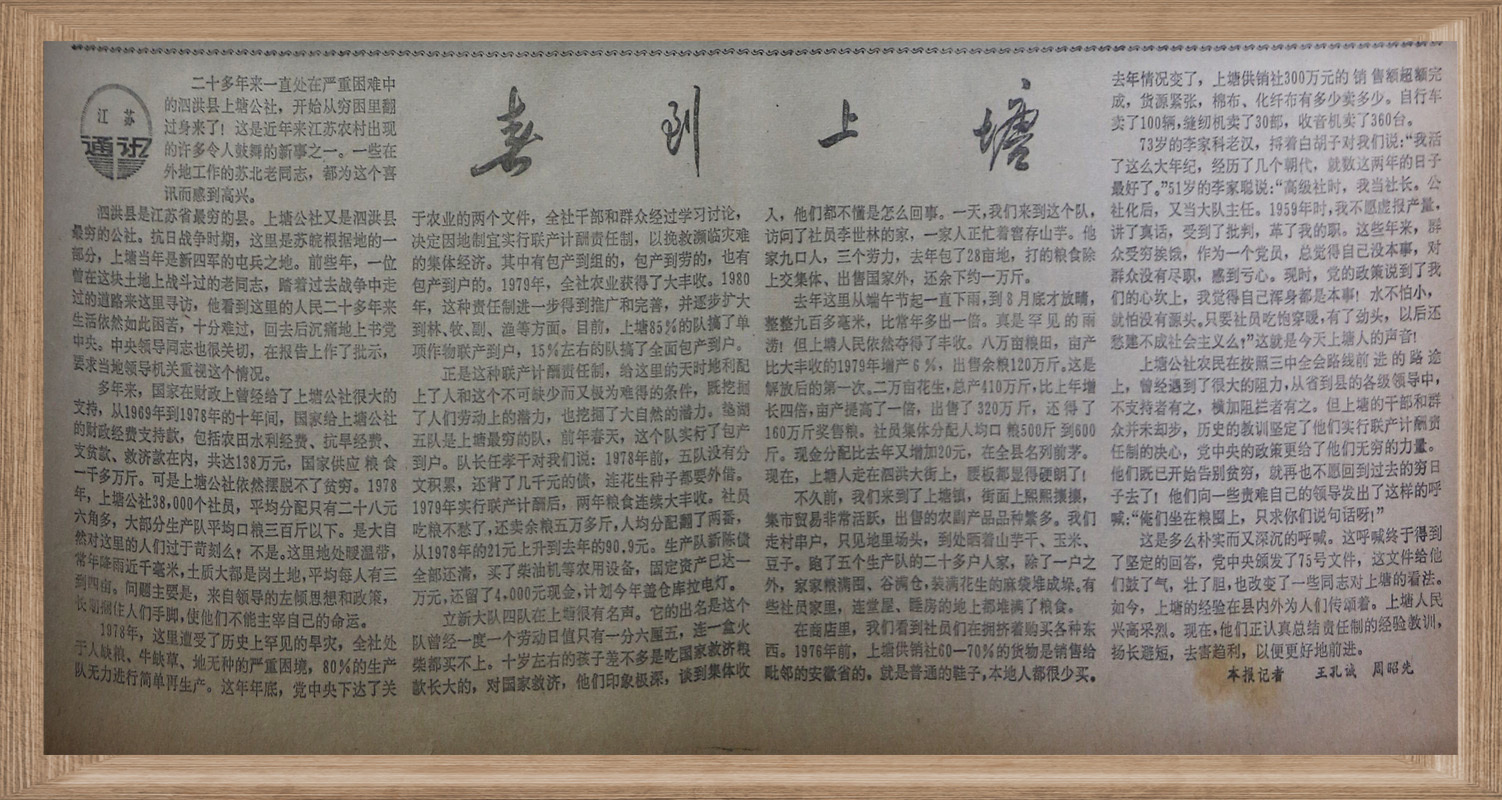 江苏
通讯
春到上塘
二十多年来一直处在严重困难中
的泗洪县上塘公社，开始从穷困里翻
过身来了！这是近年来江苏农村出现
的许多令人鼓舞的新事之一。一些在
外地工作的苏北老同志，都为这个喜
讯而感到高兴。
泗洪县是江苏省最穷的县。上塘公社又是泗洪县
最穷的公社。抗日战争时期，这里是苏皖根据地的一
部分，上塘当年是新四军的屯兵之地。前些年，一位
曾在这块土地上战斗过的老同志，踏着过去战争中走
过的道路来这里寻访，他看到这里的人民二十多年来
生活依然如此困苦，十分难过，回去后沉痛地上书党
中央。中央领导同志也很关切，在报告上作了批示，
要求当地领导机关重视这个情况。
多年来，国家在财政上曾经给了上塘公社很大的
支持，从1969年到1978年的十年间，国家给上塘公社
的财政经费支持款，包括农田水利经费、抗旱经费、
支贫款、救济款在内，共达138万元，国家供应粮食
一千多万斤。可是上塘公社依然摆脱不了贫穷。1978
年，上塘公社38,000个社员，平均分配只有二十八元
六角多，大部分生产队平均口粮三百斤以下。是大自
然对这里的人们过于苛刻么！不是。这里地处暖温带，
常年降雨近千毫米，土质大都是岗土地，平均每人有三
到四亩。问题主要是，来自领导的左倾思想和政策，
长期捆住人们手脚，使他们不能主宰自己的命运。
1978年，这里遭受了历史上罕见的旱灾，全社处
于人缺粮、牛缺草、地无种的严重困境，80％的生产
队无力进行简单再生产。这年年底，党中央下达了关
于农业的两个文件，全社干部和群众经过学习讨论，
决定因地制宜实行联产计酬责任制，以挽救濒临灾难
的集体经济。其中有包产到组的，包产到劳的，也有
包产到户的。1979年，全社农业获得了大丰收。1980
年，这种责任制进一步得到推广和完善，并逐步扩大
到林、牧、副、渔等方面。目前，上塘85％的队搞了单
项作物联产到户，15％左右的队搞了全面包产到户。
正是这种联产计酬责任制，给这里的天时地利配
上了人和这个不可缺少而又极为难得的条件，既挖掘
了人们劳动上的潜力，也挖掘了大自然的潜力。垫湖
五队是上塘最穷的队，前年春天，这个队实行了包产
到户。队长任孝干对我们说：1978年前，五队没有分
文积累，还背了几千元的债，连花生种子都要外借。
1979年实行联产计酬后，两年粮食连续大丰收。社员
吃粮不愁了，还卖余粮五万多斤，人均分配翻了两番，
从1978年的21元上升到去年的90.9元。生产队新陈债
全部还清，买了柴油机等农用设备，固定资产已达一
万元，还留了4,000元现金，计划今年盖仓库拉电灯。
立新大队四队在上塘很有名声。它的出名是这个
队曾经一度一个劳动日值只有一分六厘五，连一盒火
柴都买不上。十岁左右的孩子差不多是吃国家救济粮
款长大的，对国家救济，他们印象极深，谈到集体收
入，他们都不懂是怎么回事。一天，我们来到这个队，
访问了社员李世林的家，一家人正忙着窖存山芋。他
家九口人，三个劳力，去年包了28亩地，打的粮食除
上交集体、出售国家外，还余下约一万斤。
去年这里从端午节起一直下雨，到8月底才放晴，
整整九百多毫米，比常年多出一倍。真是罕见的雨
涝！但上塘人民依然夺得了丰收。八万亩粮田，亩产
比大丰收的1979年增产6％，出售余粮120万斤。这是
解放后的第一次。二万亩花生，总产410万斤，比上年增
长四倍，亩产提高了一倍，出售了320万斤，还得了
160万斤奖售粮。社员集体分配人均口粮500斤到600
斤。现金分配比去年又增加20元，在全县名列前茅。
现在，上塘人走在泗洪大街上，腰板都显得硬朗了！
不久前，我们来到了上塘镇，街面上熙熙攘攘，
集市贸易非常活跃，出售的农副产品品种繁多。我们
走村串户，只见地里场头，到处晒着山芋干、玉米、
豆子。跑了五个生产队的二十多户人家，除了一户之
外，家家粮满囤、谷满仓，装满花生的麻袋堆成垛。有
些社员家里，连堂屋、睡房的地上都堆满了粮食。
在商店里，我们看到社员们在拥挤着购买各种东
西。1976年前，上塘供销社60—70％的货物是销售给
毗邻的安徽省的。就是普通的鞋子，本地人都很少买。
去年情况变了，上塘供销社300万元的销售额超额完
成，货源紧张，棉布、化纤布有多少卖多少。自行车
卖了100辆，缝纫机卖了30部，收音机卖了360台。
73岁的李家科老汉，捋着白胡子对我们说：“我活
了这么大年纪，经历了几个朝代，就数这两年的日子
最好了。”51岁的李家聪说：“高级社时，我当社长。公
社化后，又当大队主任。1959年时，我不愿虚报产量，
讲了真话，受到了批判，革了我的职。这些年来，群
众受穷挨饿，作为一个党员，总觉得自己没本事，对
群众没有尽职，感到亏心。现时，党的政策说到了我
们的心坎上，我觉得自己浑身都是本事！水不怕小，
就怕没有源头。只要社员吃饱穿暖，有了劲头，以后还
愁建不成社会主义么！”这就是今天上塘人的声音！
上塘公社农民在按照三中全会路线前进的路途
上，曾经遇到了很大的阻力，从省到县的各级领导中，
不支持者有之，横加阻拦者有之。但上塘的干部和群
众并未却步，历史的教训坚定了他们实行联产计酬责
任制的决心，党中央的政策更给了他们无穷的力量。
他们既已开始告别贫穷，就再也不愿回到过去的穷日
子去了！他们向一些责难自己的领导发出了这样的呼
喊：“俺们坐在粮囤上，只求你们说句话呀！”
这是多么朴实而又深沉的呼喊。这呼喊终于得到
了坚定的回答，党中央颁发了75号文件，这文件给他
们鼓了气，壮了胆，也改变了一些同志对上塘的看法。
如今，上塘的经验在县内外为人们传颂着。上塘人民
兴高采烈。现在，他们正认真总结责任制的经验教训，
扬长避短，去害趋利，以便更好地前进。
本报记者　王孔诚　周昭先